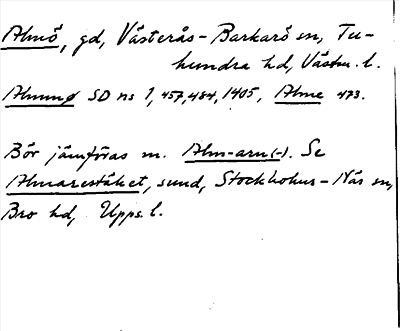 Almö, gd, Västerås-Barkarö sn, Tu-
hundra hd, Västm. l.
Almmø SD ns 1, 457, 484, 1405, Alme 473.
Bör jämföras m. Alm-arn(-). Se
Almarestäket, sund, Stockholms-Näs sn,
Bro hd, Upps. l.